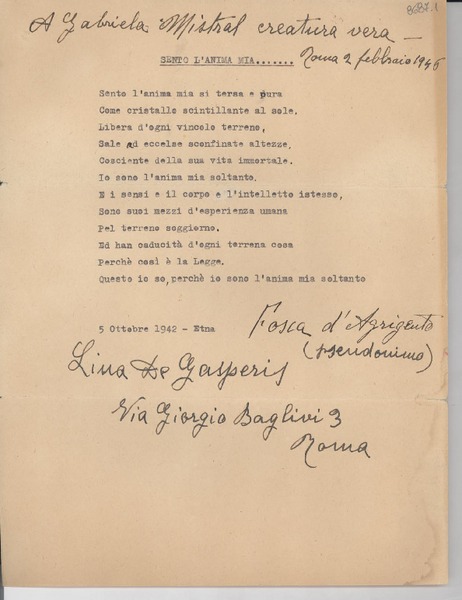 8687.1
A Gabriela Mistral creatura vera —
Roma 2 febbraio 1946
SENTO L'ANIMA MIA.......
Sento l'anima mia si tersa e pura
Come cristallo scintillante al sole.
Libera d'ogni vincolo terreno,
Sale ad eccelse sconfinate altezze,
Cosciente della sua vita immortale.
Io sono l'anima mia soltanto.
E i sensi e il corpo e l'intelletto istesso,
Sono suoi mezzi d'esperienza umana
Pel terreno soggiorno.
Ed han caducità d'ogni terrena cosa
Perchè così è la Legge.
Questo io so, perchè io sono l'anima mia soltanto
5 Ottobre 1942 - Etna
Fosca d'Agrigento
(pseudonimo)
Lina De Gasperis
Via Giorgio Baglivi 3
Roma